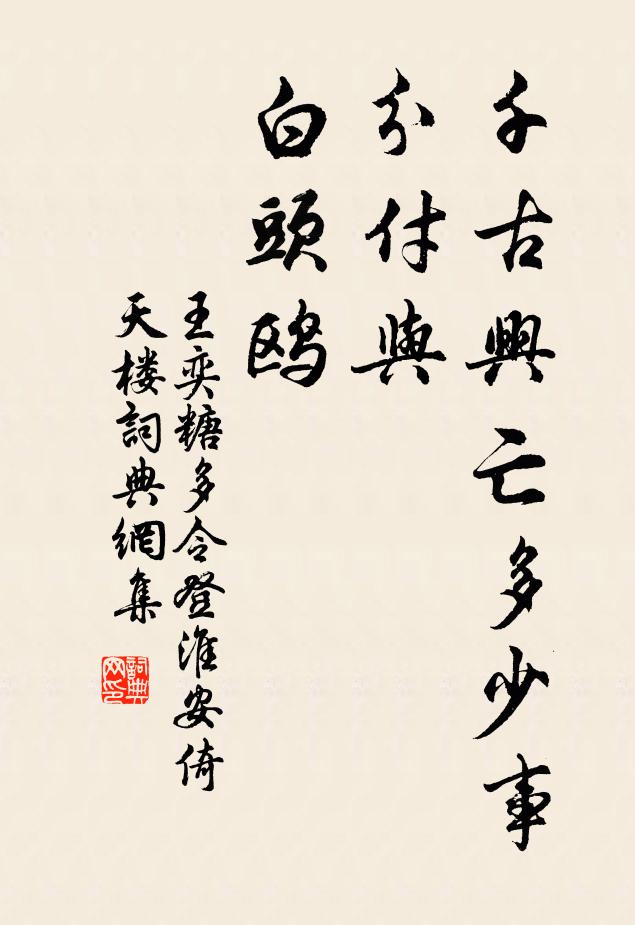 千古興亡多少事
分付與
白頭鷗
王奕糖多令登淮安倚
天楼詞典網集
詞典网印